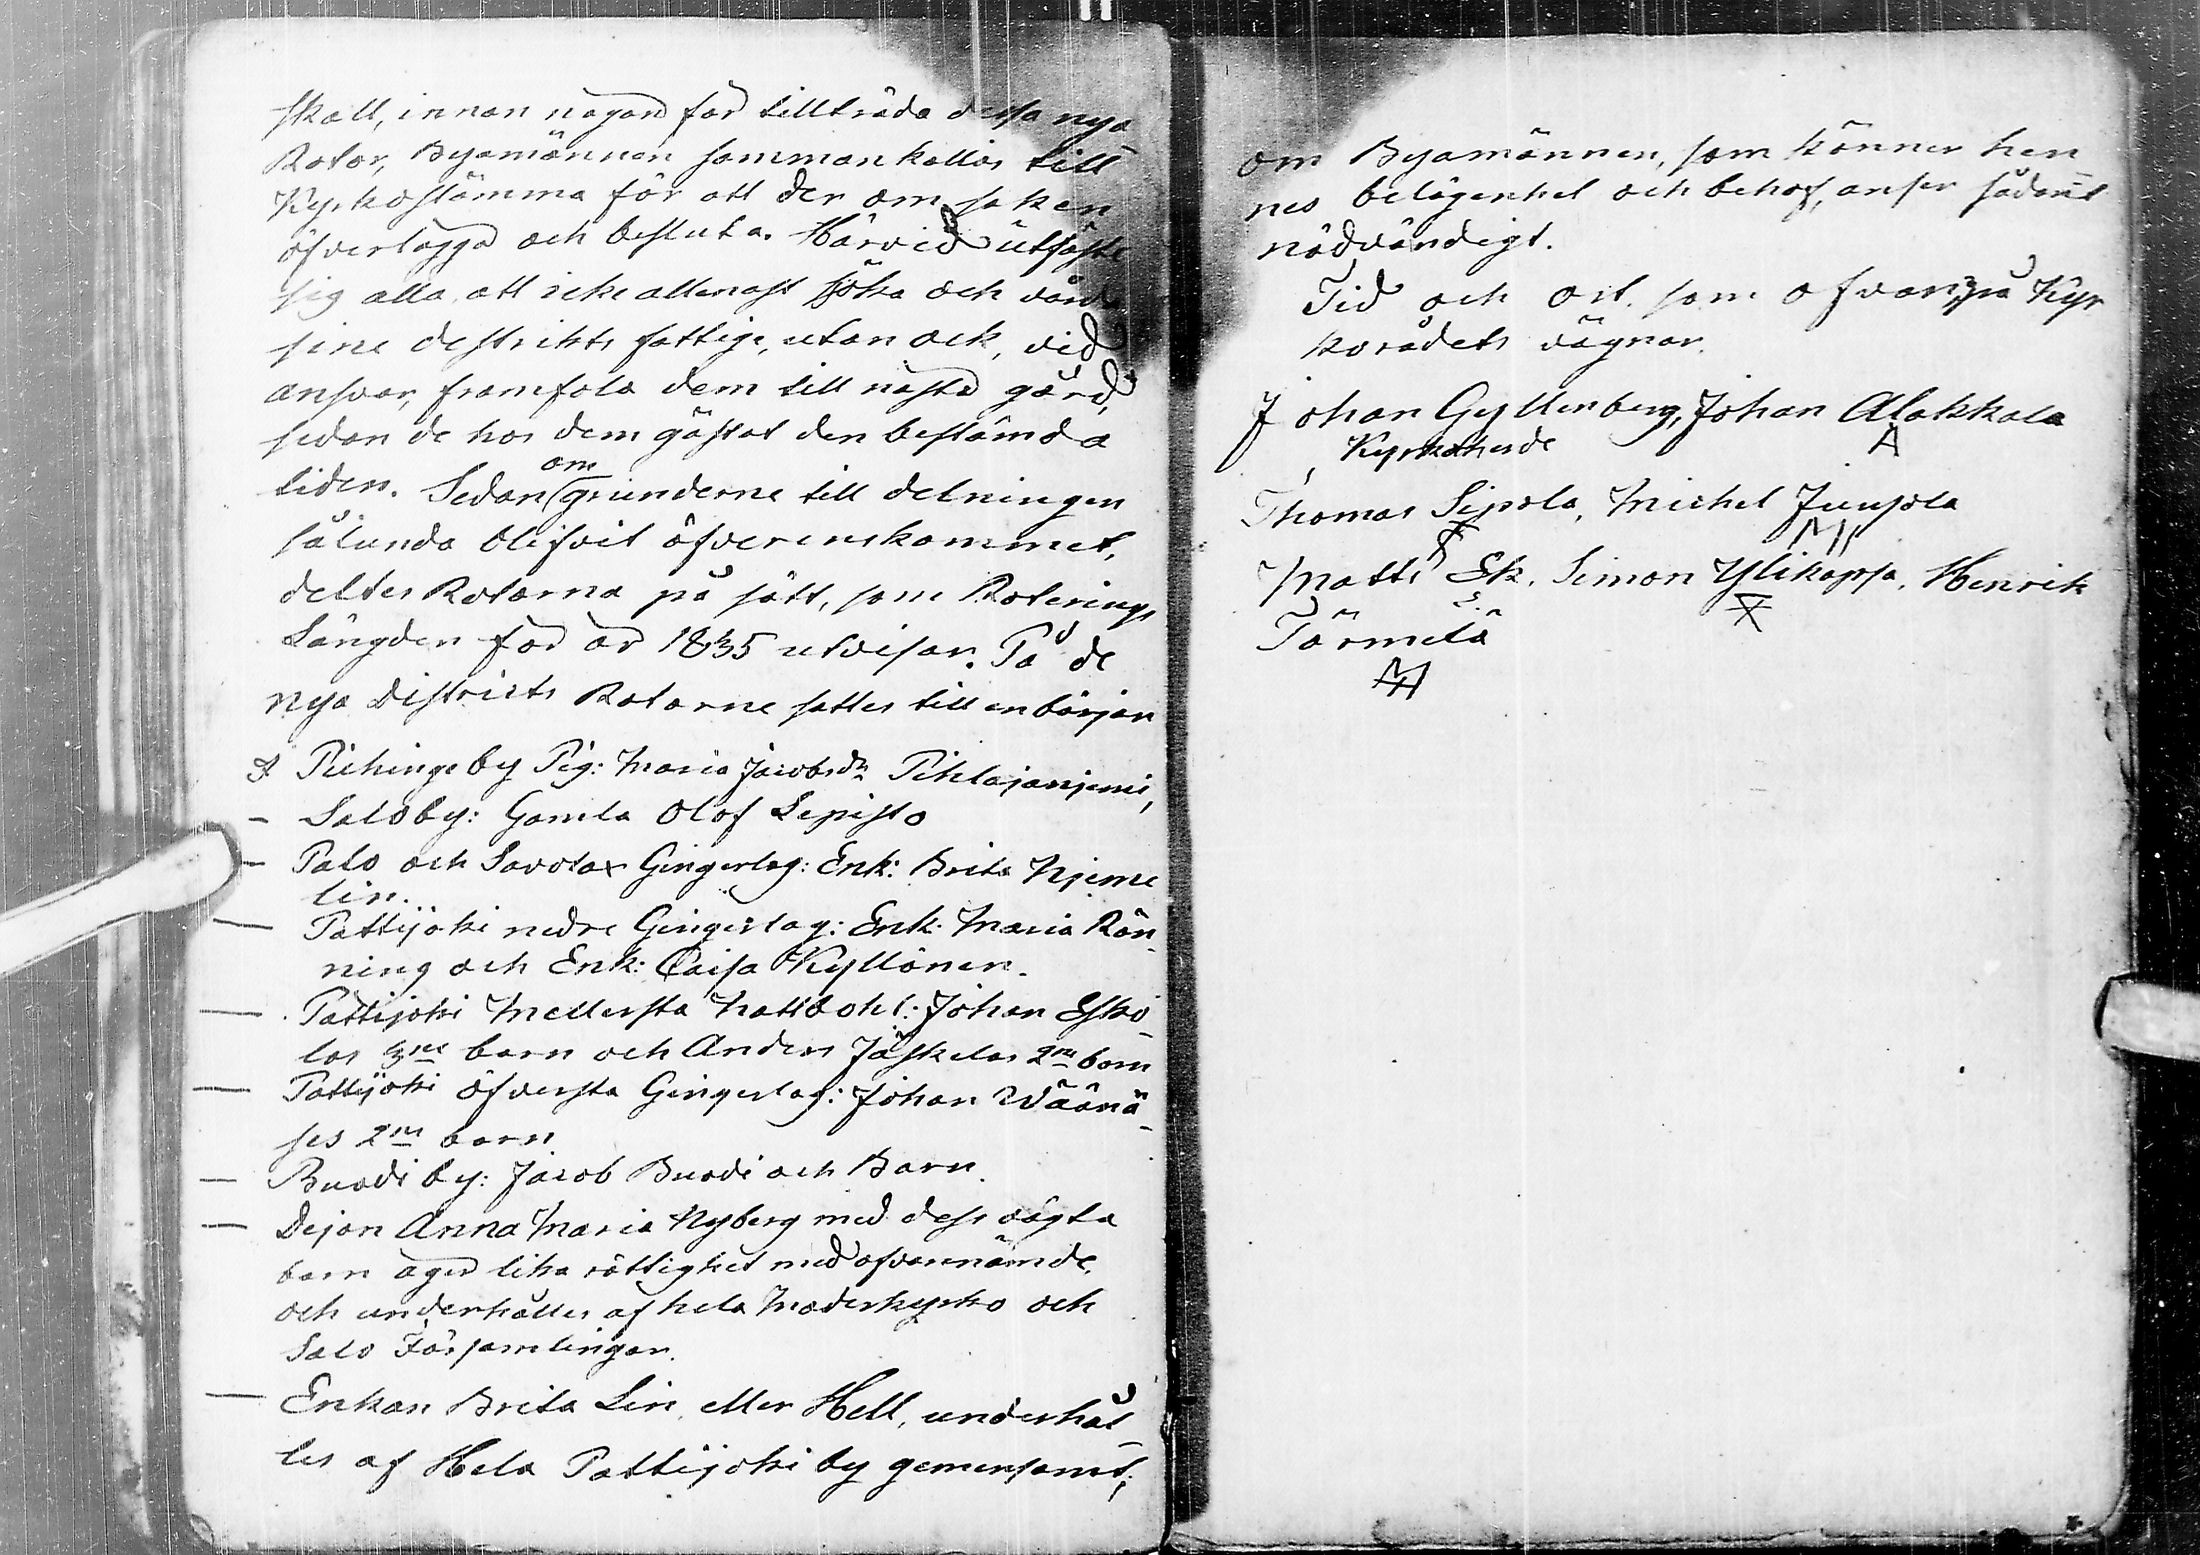 skall, innan någon får tillträda dessa nya
Rotor, Byamännen sammankallas till
Kyrkostämma för att der om saken
öfverlägga och besluta. Härvid utfäste
sig alla, att icke allenast söka och vårda
sine destrikts fattige, utan ock, vid
ansvar, framfola dem till nästa gård,
sedan de hos dem gästat den bestämda
tiden. Sedan om grunderne till delningen
sålunda blifvit öfverenskommet,
deltes Rotorna på sätt, som Roterings
Längden för år 1835 utvisar. På de
nya Districts Rotorne sattes till en början
I Piehinge by Pig: Maria Jacobsdr Pihlajaniemi,
— Salo by: Gamla Olof Lepistö
— Palo och Savolax Gingerlag: Enk: Brita Njeme
lin.
— Pattijoki nedre Gingerlag: Enk: Maria Rön
ning och Enk: Caisa Kyllönen.
— Pattijoki Mellersta Mattboht: Johan Esko
las 3ne barn och Anders Jäskelas 2ne barn
— Pattijoki öfversta Gingerlag: Johan Wäänä
ses 2ne barn
— Buodi by: Jacob Buodi och Barn.
— Dejan Anna Maria Nyberg med dess oägta
barn äger lika rättighet med ofvannämde,
och underhålles af hela Moderkyrko och
Salo Församlingar.
— Enkan Brita Lin, eller Hell, underhål
les af Hela Pattijoki by gemensamt,
om Byamännen, som känner hen
nes belägenhet och behof, anser sådant
nödvändigt.
Tid och ort som ofvan, på Kyr
korådets vägnar.
Johan Gyllenberg, Johan Alakkala
Kyrkoherde A
Thomas Sipola, Michel Junsola
Matts Ek. Simon Ylikappa, Henrik
Törmelä